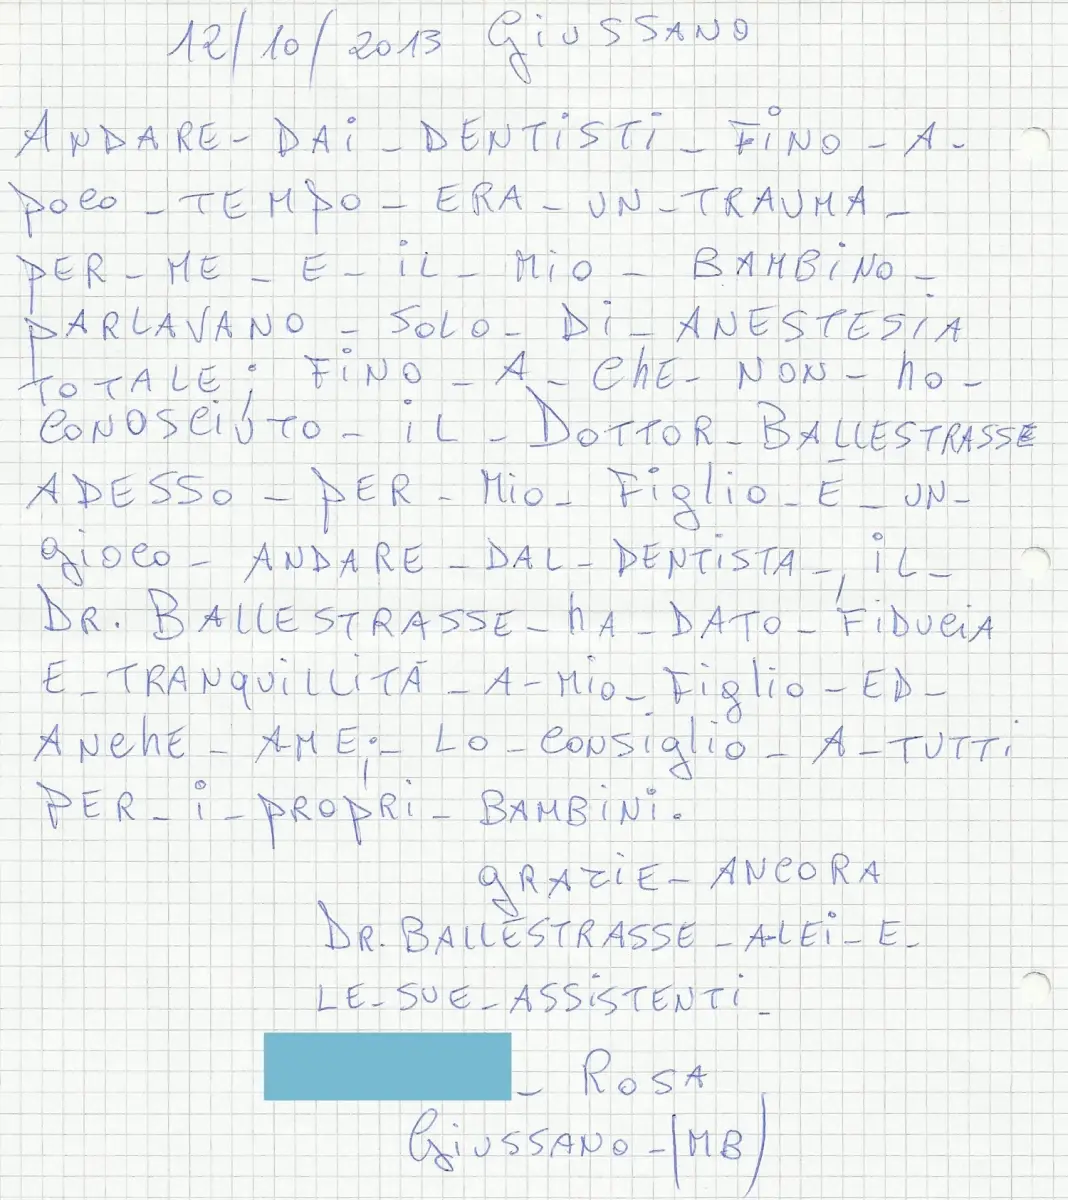 12/10/2013 GiUSSANO
ANDARE - DAi - DENTiSTi - FiNO - A -
POCO - TEMPO - ERA - UN - TRAUMA -
PER - ME - E - iL - MiO - BAMBiNO -
PARLAVANO - SOLO - Di - ANESTESiA
TOTALE; FiNO - A - ChE - NON - hO -
CONOSCiUTO - iL - DOTTOR - BALLESTRASSE
ADESSO - PER - MiO - Figlio - È - UN -
giOCO - ANDARE - DAL - DENTiSTA -, iL -
DR. BALLESTRASSE - hA - DATO - FiDUCiA
E - TRANqUiLLiTÀ - A - MiO - Figlio - ED -
ANChE - A-ME; - LO - CONSiglio - A - TUTTi
PER - i - PROPRi - BAMBiNi.
gRAZiE - ANCORA
DR. BALLESTRASSE - A-LEi - E -
LE - SUE - ASSiSTENTi -
- ROSA
GiUSSANO - (MB)